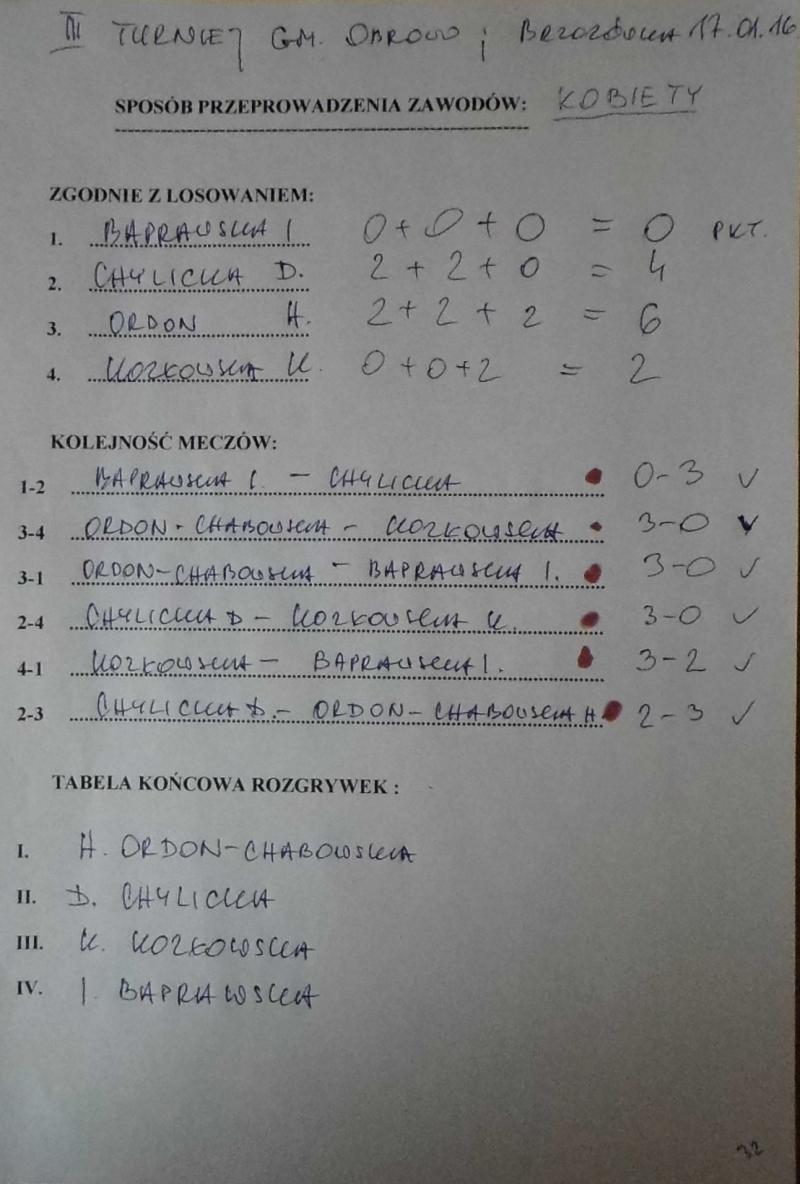 III TURNIEJ GM. OBROWO ; BRZOZÓWKA 17.01.16
SPOSÓB PRZEPROWADZENIA ZAWODÓW: KOBIETY
ZGODNIE Z LOSOWANIEM:
1. BAPRAWSKA I 0 + 0 + 0 = 0 PKT.
2. CHYLICKA D. 2 + 2 + 0 = 4
3. ORDON H. 2 + 2 + 2 = 6
4. KOZKOWSKA K. 0 + 0 + 2 = 2
KOLEJNOŚĆ MECZÓW:
1-2 BAPRAWSKA I. - CHYLICKA 0-3 ✓
3-4 ORDON-CHABOWSKA - KOZKOWSKA 3-0 ✓
3-1 ORDON-CHABOWSKA - BAPRAWSKA I. 3-0 ✓
2-4 CHYLICKA D - KOZKOWSKA K. 3-0 ✓
4-1 KOZKOWSKA - BAPRAWSKA I. 3-2 ✓
2-3 CHYLICKA D. - ORDON-CHABOWSKA H 2-3 ✓
TABELA KOŃCOWA ROZGRYWEK :
I. H. ORDON-CHABOWSKA
II. D. CHYLICKA
III. K. KOZKOWSKA
IV. I. BAPRAWSKA
32